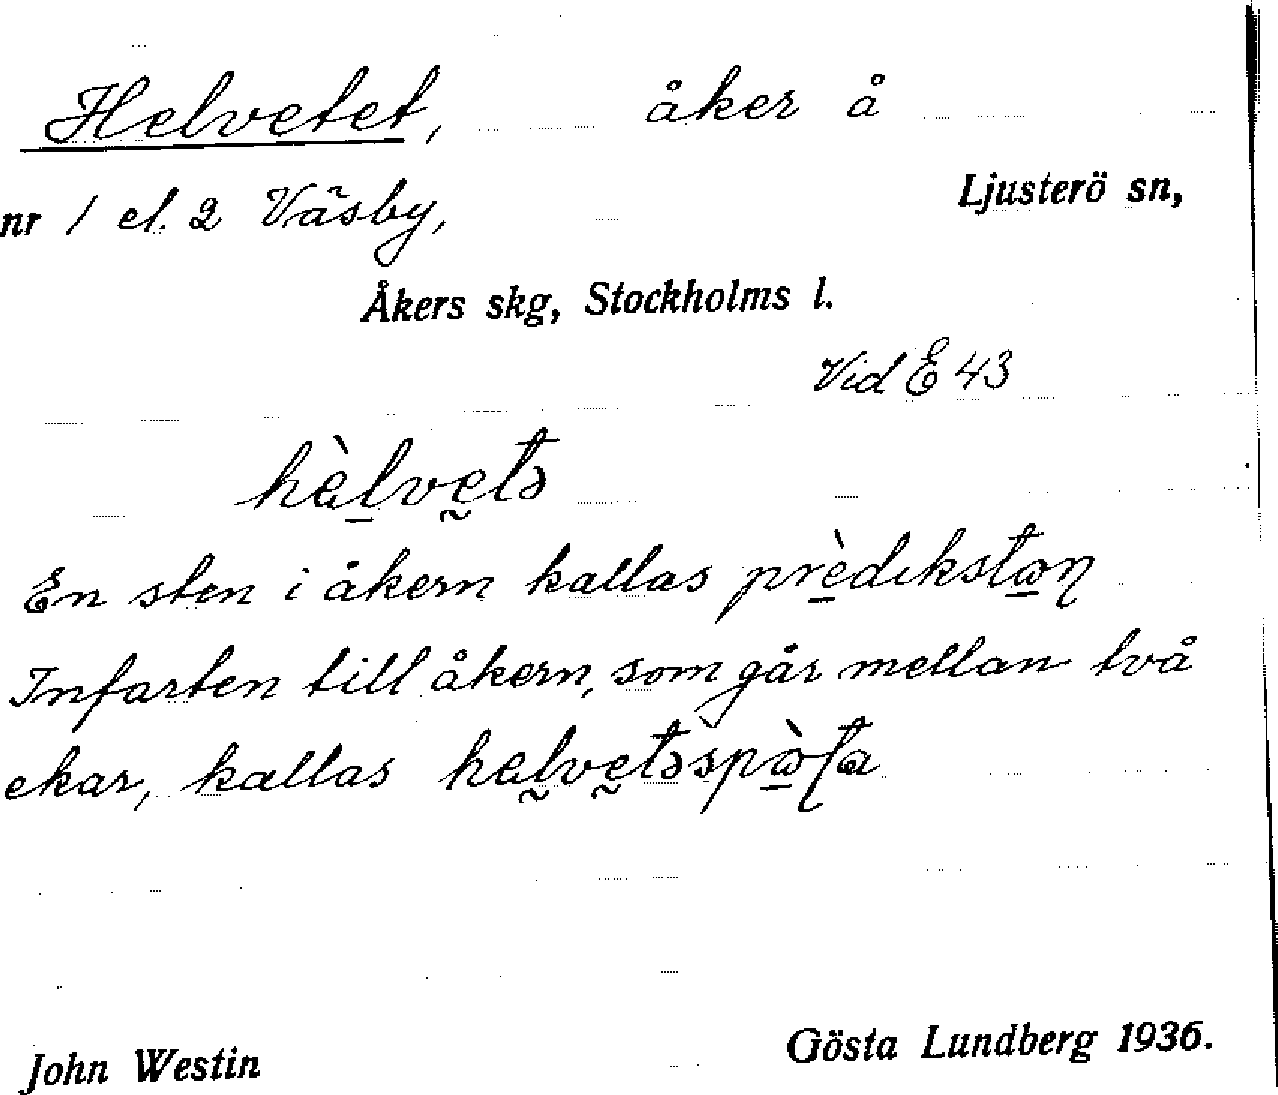 Helvetet, åker å
nr 1 el. 2 Väsby, Ljusterö sn,
Åkers skg, Stockholms l.
Vid E 43
hèlvetə
En sten i åkern kallas prèdikstɷn
Infarten till åkern, som går mellan två
ekar, kallas
John Westin Gösta Lundberg 1936.